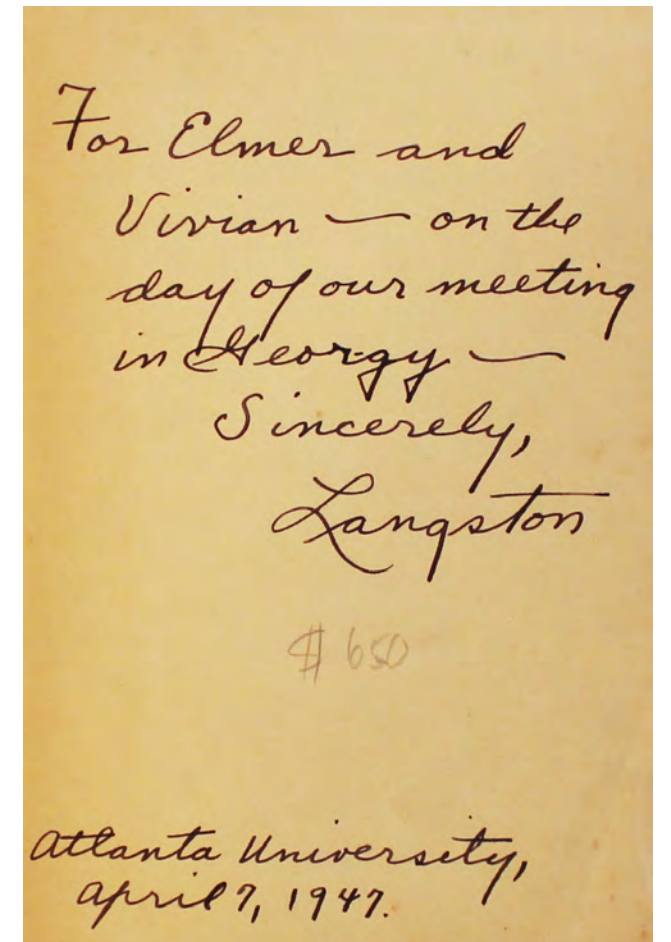 For Elmer and
Vivian — on the
day of our meeting
in Georgy —
Sincerely,
Langston
$650
Atlanta University,
April 7, 1947.